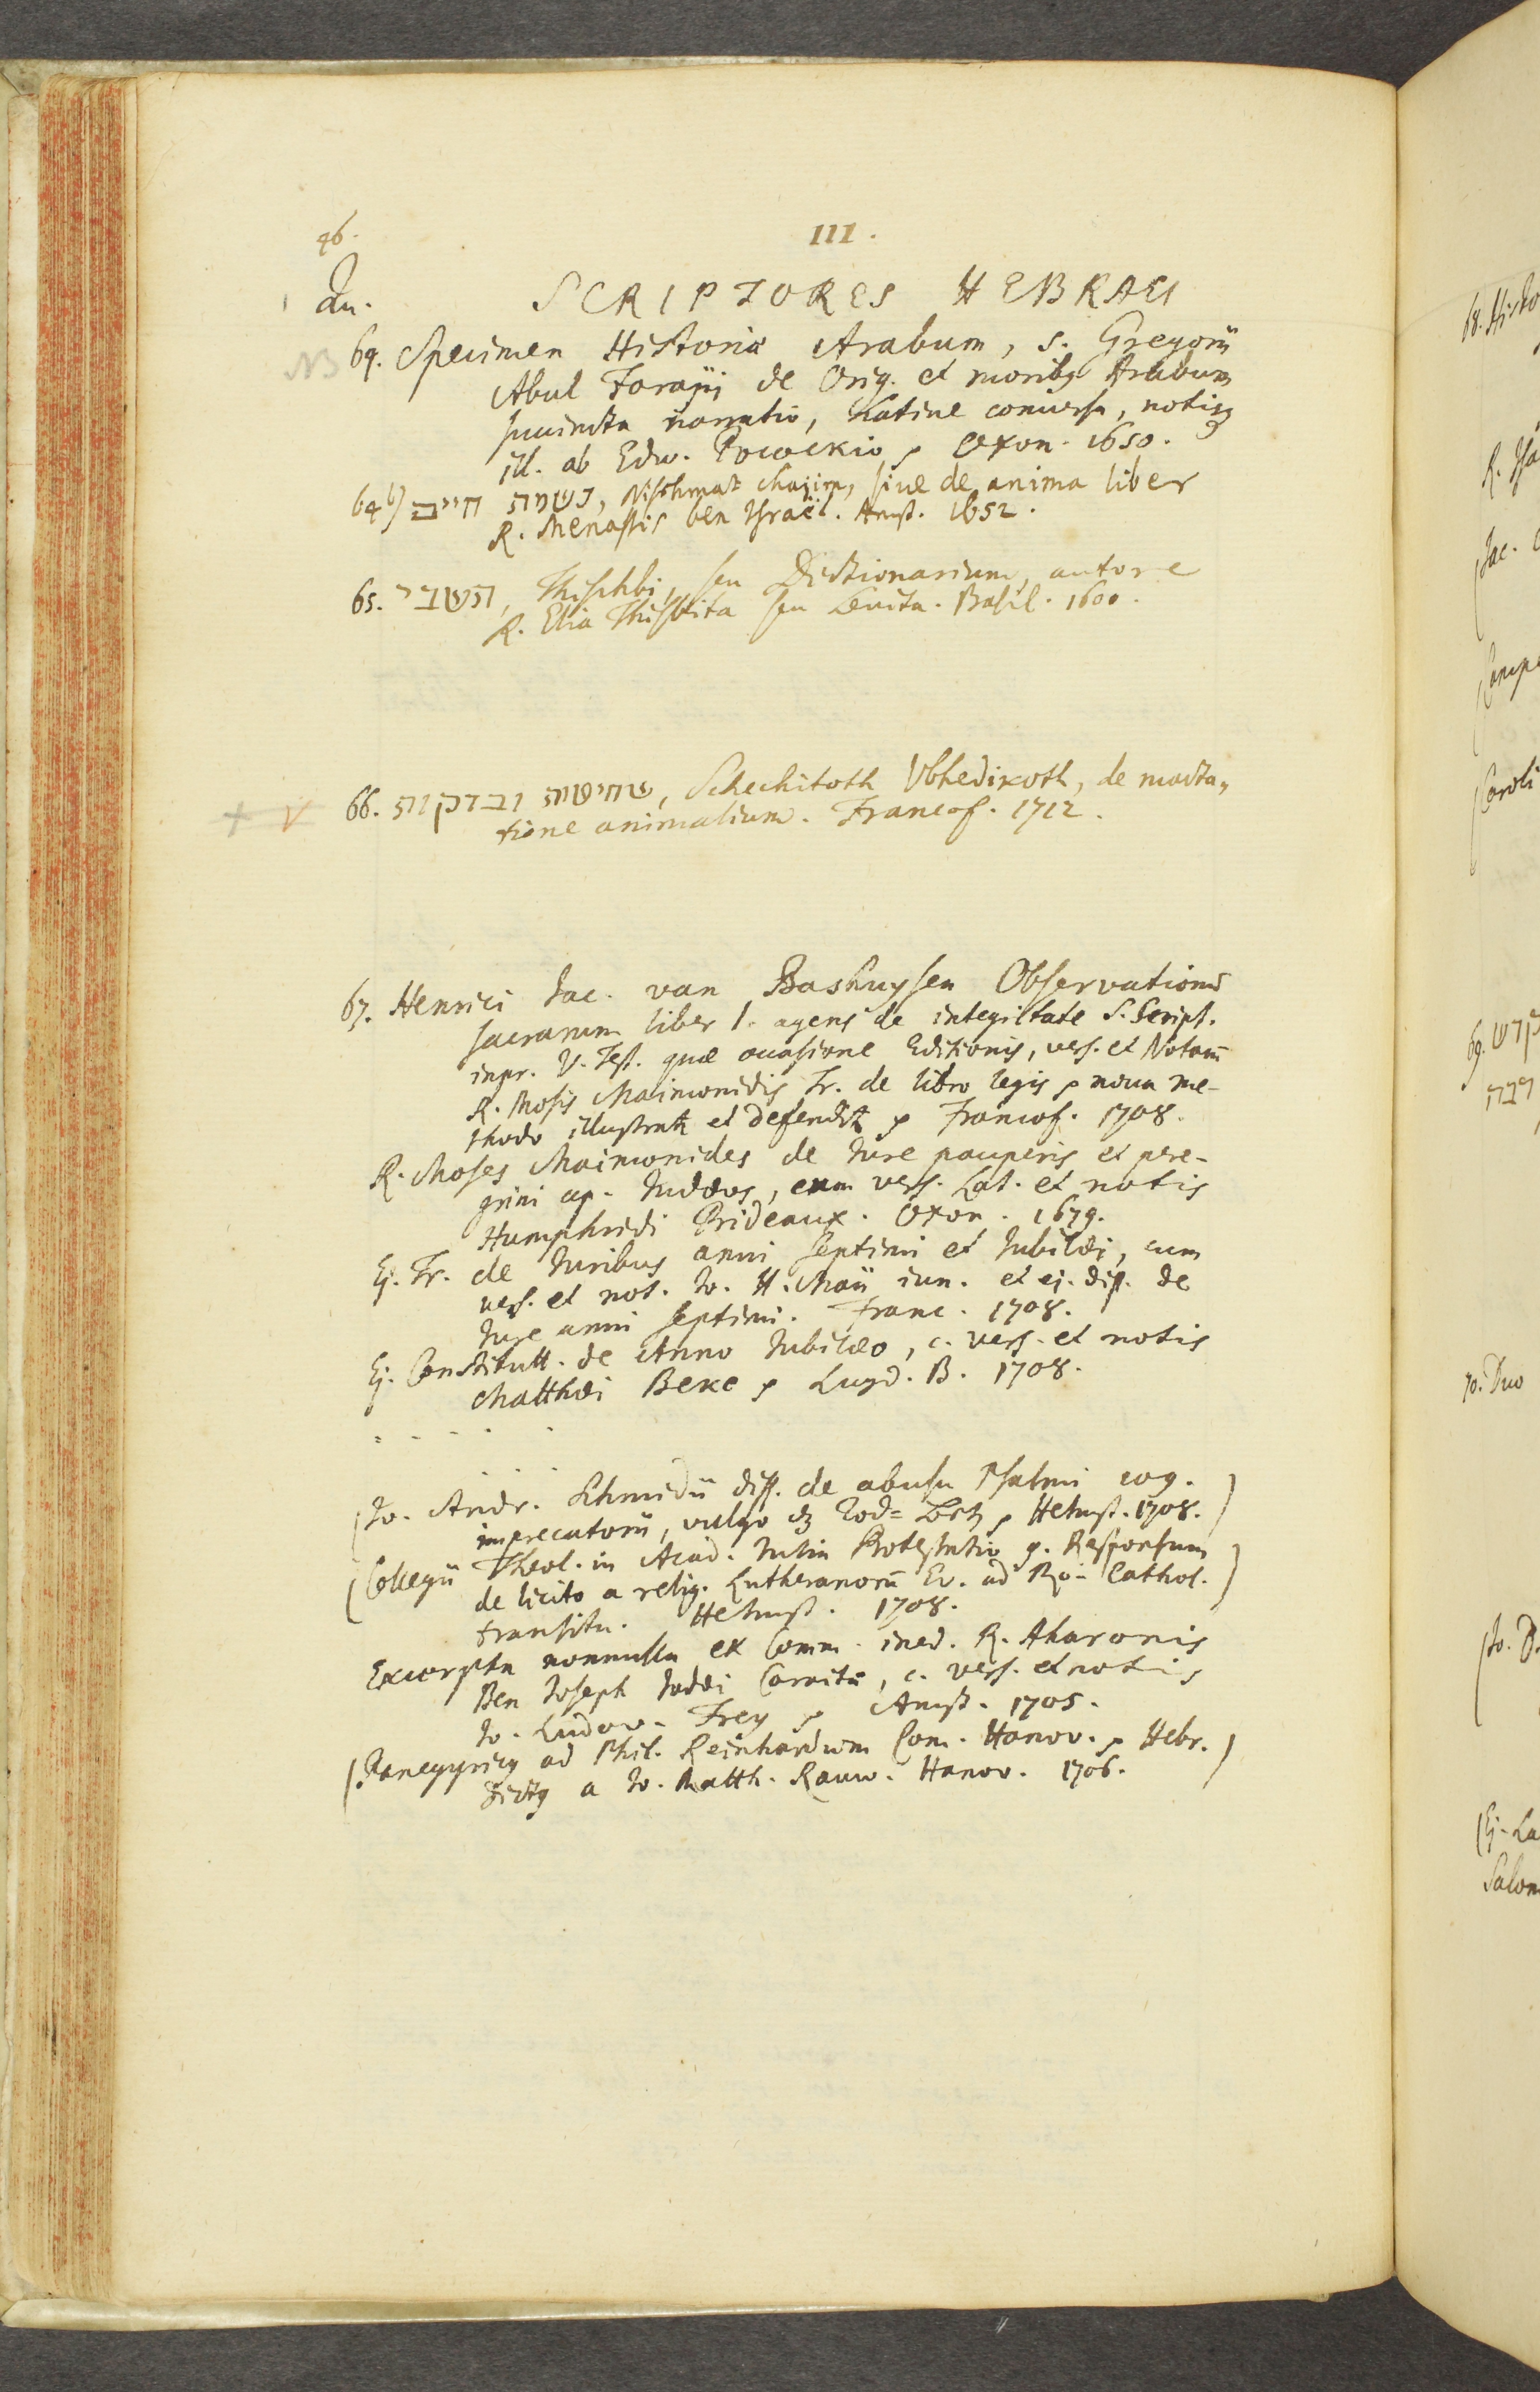 46.
III.
Qu.
SCRIPTORES HEBRAEI
NB 64. Specimen Historiæ Arabum, s. Gregorii
Abul Farajii de Orig. et moribꝰ Arabum
succincta narratio, Latine conversa, notisqꝫ
ill. ab Edw. Pocockio p Oxon. 1650.
64 b) נשמת חיים, Nischmat Chajim, siue de anima liber
R. Menassis ben Israël. Amst. 1652.
65. תשבי, Thischbi, seu Dictionarium, autore
R. Elia Thisbita seu Levita. Basil. 1600.
66. שחיטות ובדקות, Schechitoth Ubhedikoth, de macta-
tione animalium. Francof. 1712.
67. Henrici Jac. van Bashuysen Observationū
sacrarum liber 1. agens de integritate S. Script.
inpr. V. Test. quæ occasione Editionis, vers. et Notarū
R. Mosis Maimonidis Tr. de libro legis p nova me-
thodo illustratr et defenditr p Francof. 1708.
R. Moses Maimonides de Jure pauperis et pere-
grini ap. Judæos, cum vers. Lat. et notis
Humphridi Prideaux. Oxon. 1679.
Ej. Tr. de Juribus anni septimi et Jubilæi, cum
vers. et not. Jo. H. Maii iun. et ej. diss. de
Jure anni septimi. Franc. 1708.
Ej. Constitutt. de Anno Jubilæo, c. vers. et notis
Matthæi Beke p Lugd. B. 1708.
(Jo. Andr. Schmidii diss. de abusu Psalmi 109.
imprecatorii, vulgo Tod- p Helmst. 1708.)
(Collegii Theol. in Acad. Julia Protestatio g. Responsum
de licito a relig. Lutheranorū Ev. ad Ro- Cathol.
transitu. Helmst. 1708.)
Excerpta nonnulla ex Comm. ined. R. Aharonis
Ben Joseph Judæi Caraitæ, c. vers. et notis
Jo. Ludov. Frey p Amst. 1705.
(Panegyricꝰ ad Phil. Reinhardum Com. Hanov. p Hebr.
dictꝰ a Jo. Matth. Rauw. Hanov. 1706.)
68. Histo
R. Isa
(Jac.
Caroli
69. קדש
רבה
70. Duo
(Jo. D.
(Ej. La
Salom